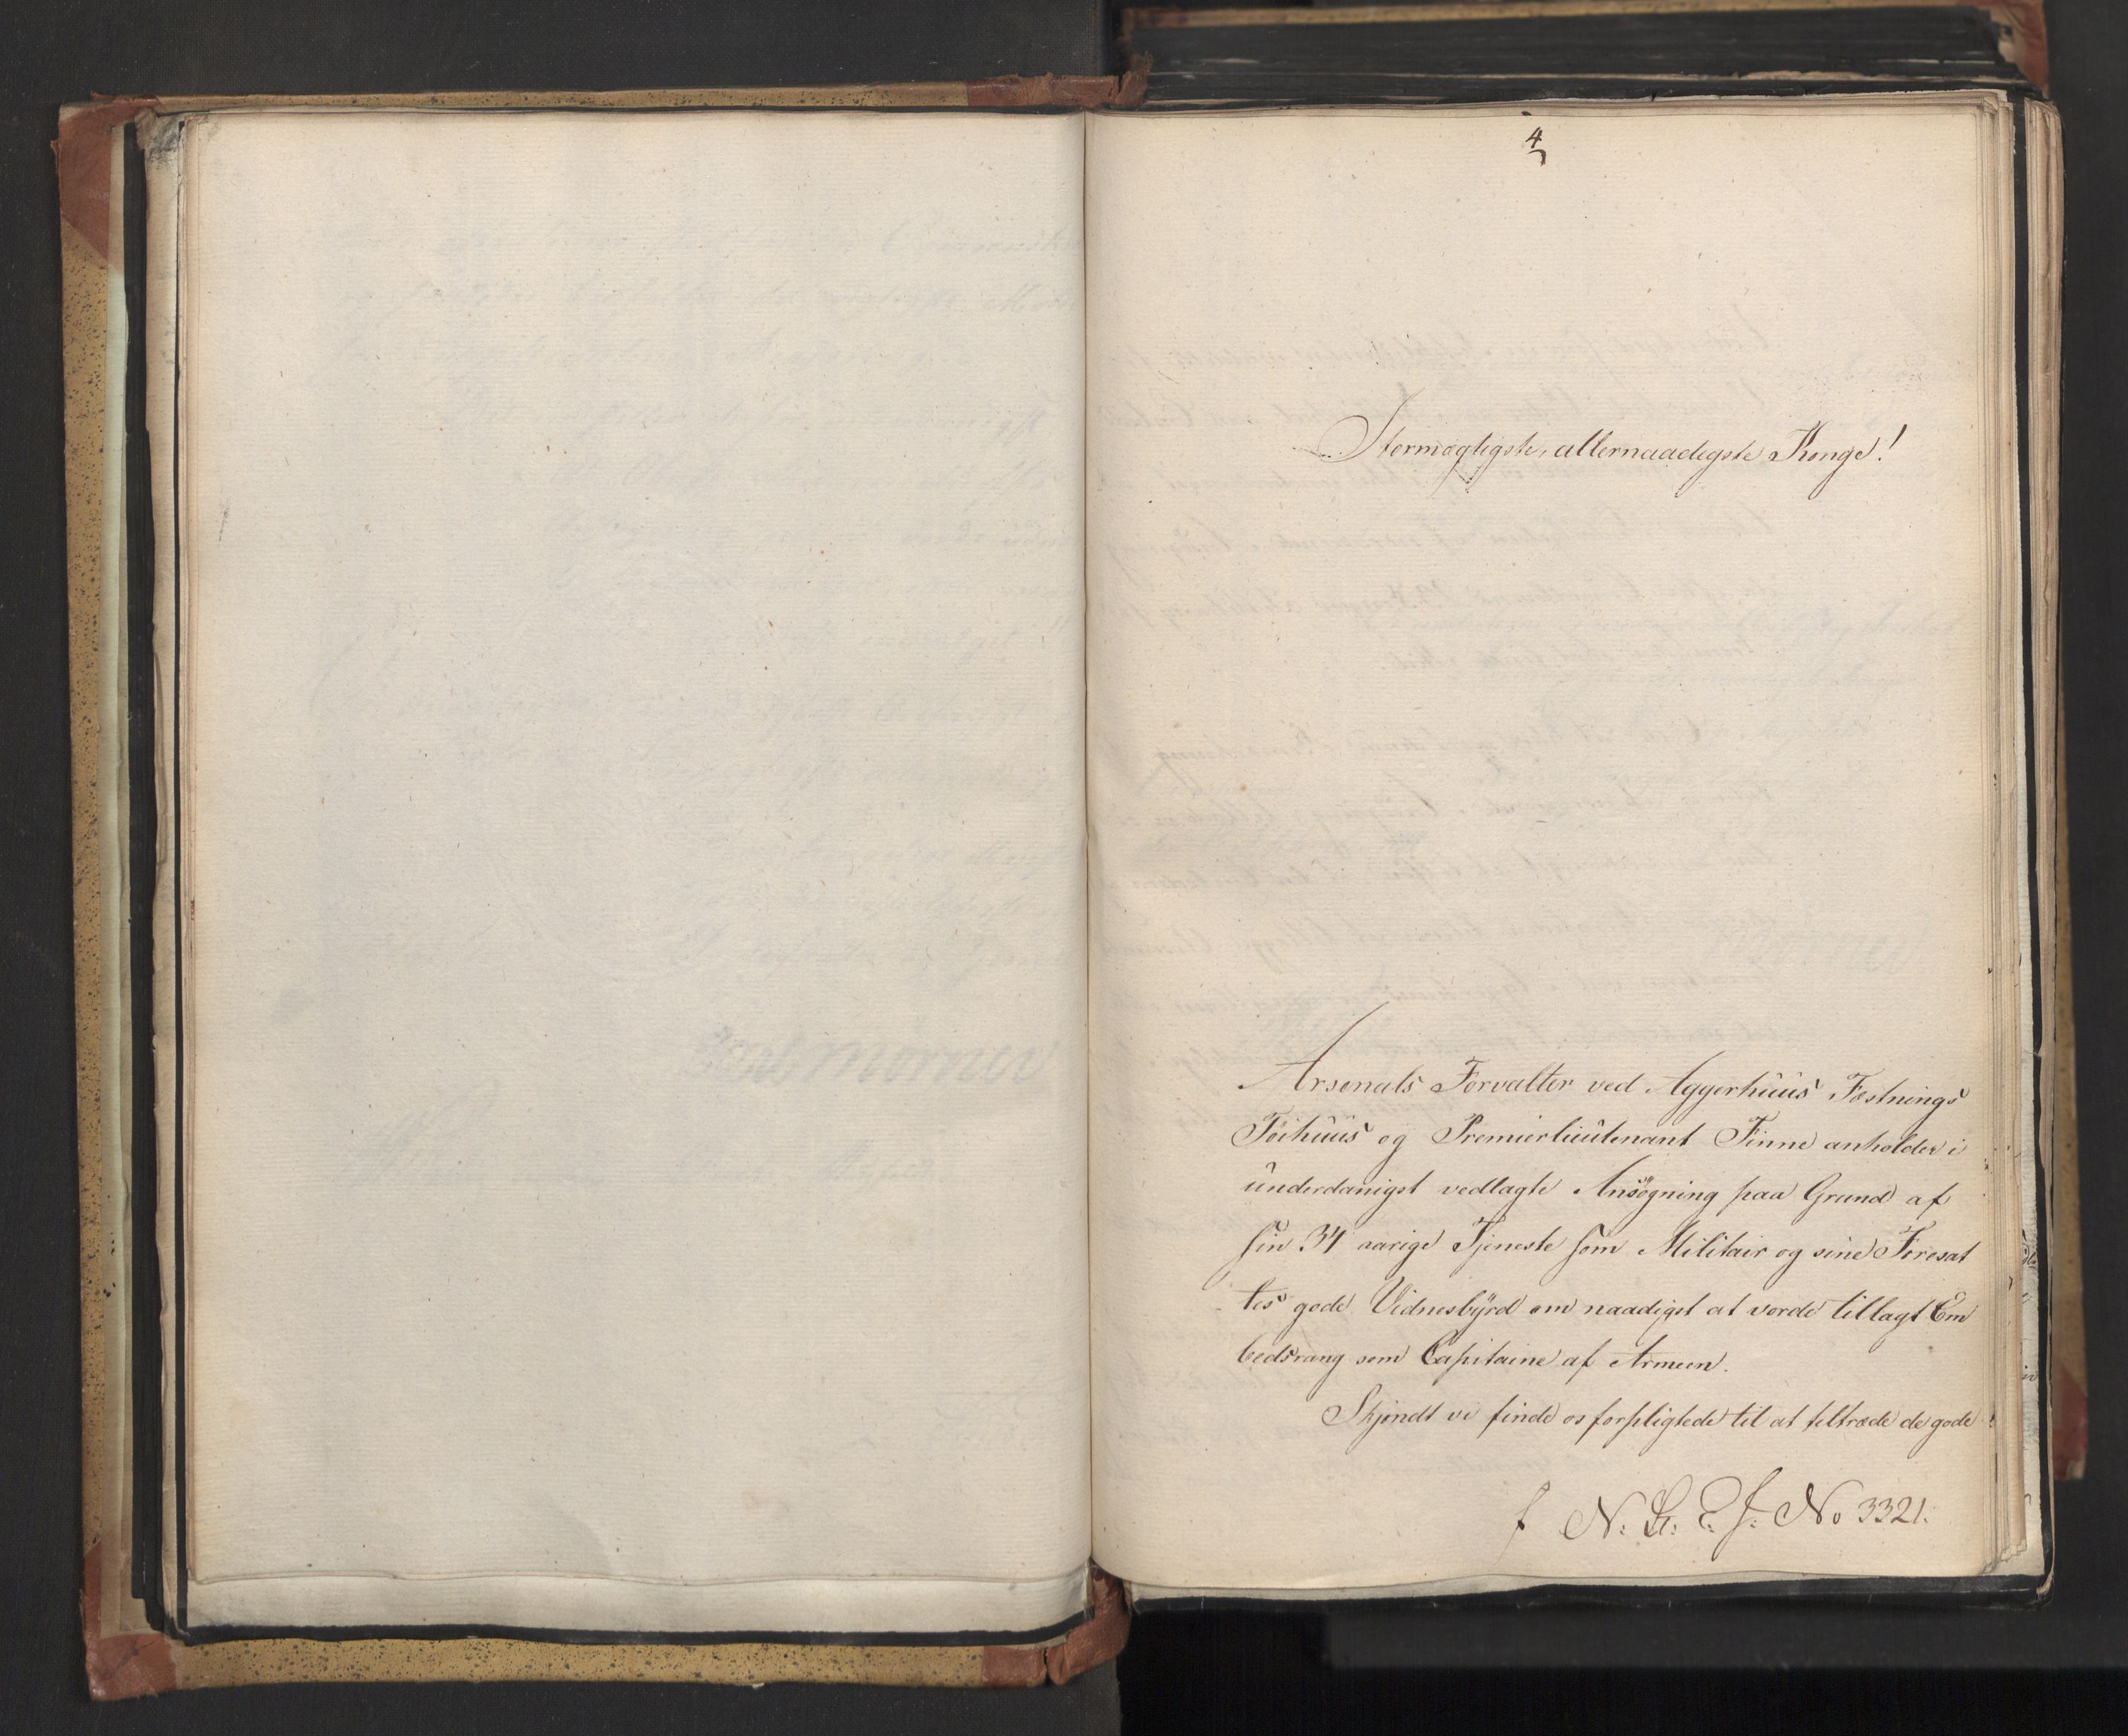 4
Stormægtigste, allernaadigste Konge!
Arsenals Forvalter ved Aggerhuus Fæstnings
Töihuus og Premierlieutenant Finne anholder i
underdanigst vedlagte Ansøgning paa Grund af
sin 34 aarige Tjeneste som Militair og sine Foresat
tes gode Vidnesbyrd om naadigst at vorde tillagt Em
bedsrang som Capitaine af Armeen.
Skjøndt vi finde os forpligtede til at tiltræde de gode
N: No 3321.